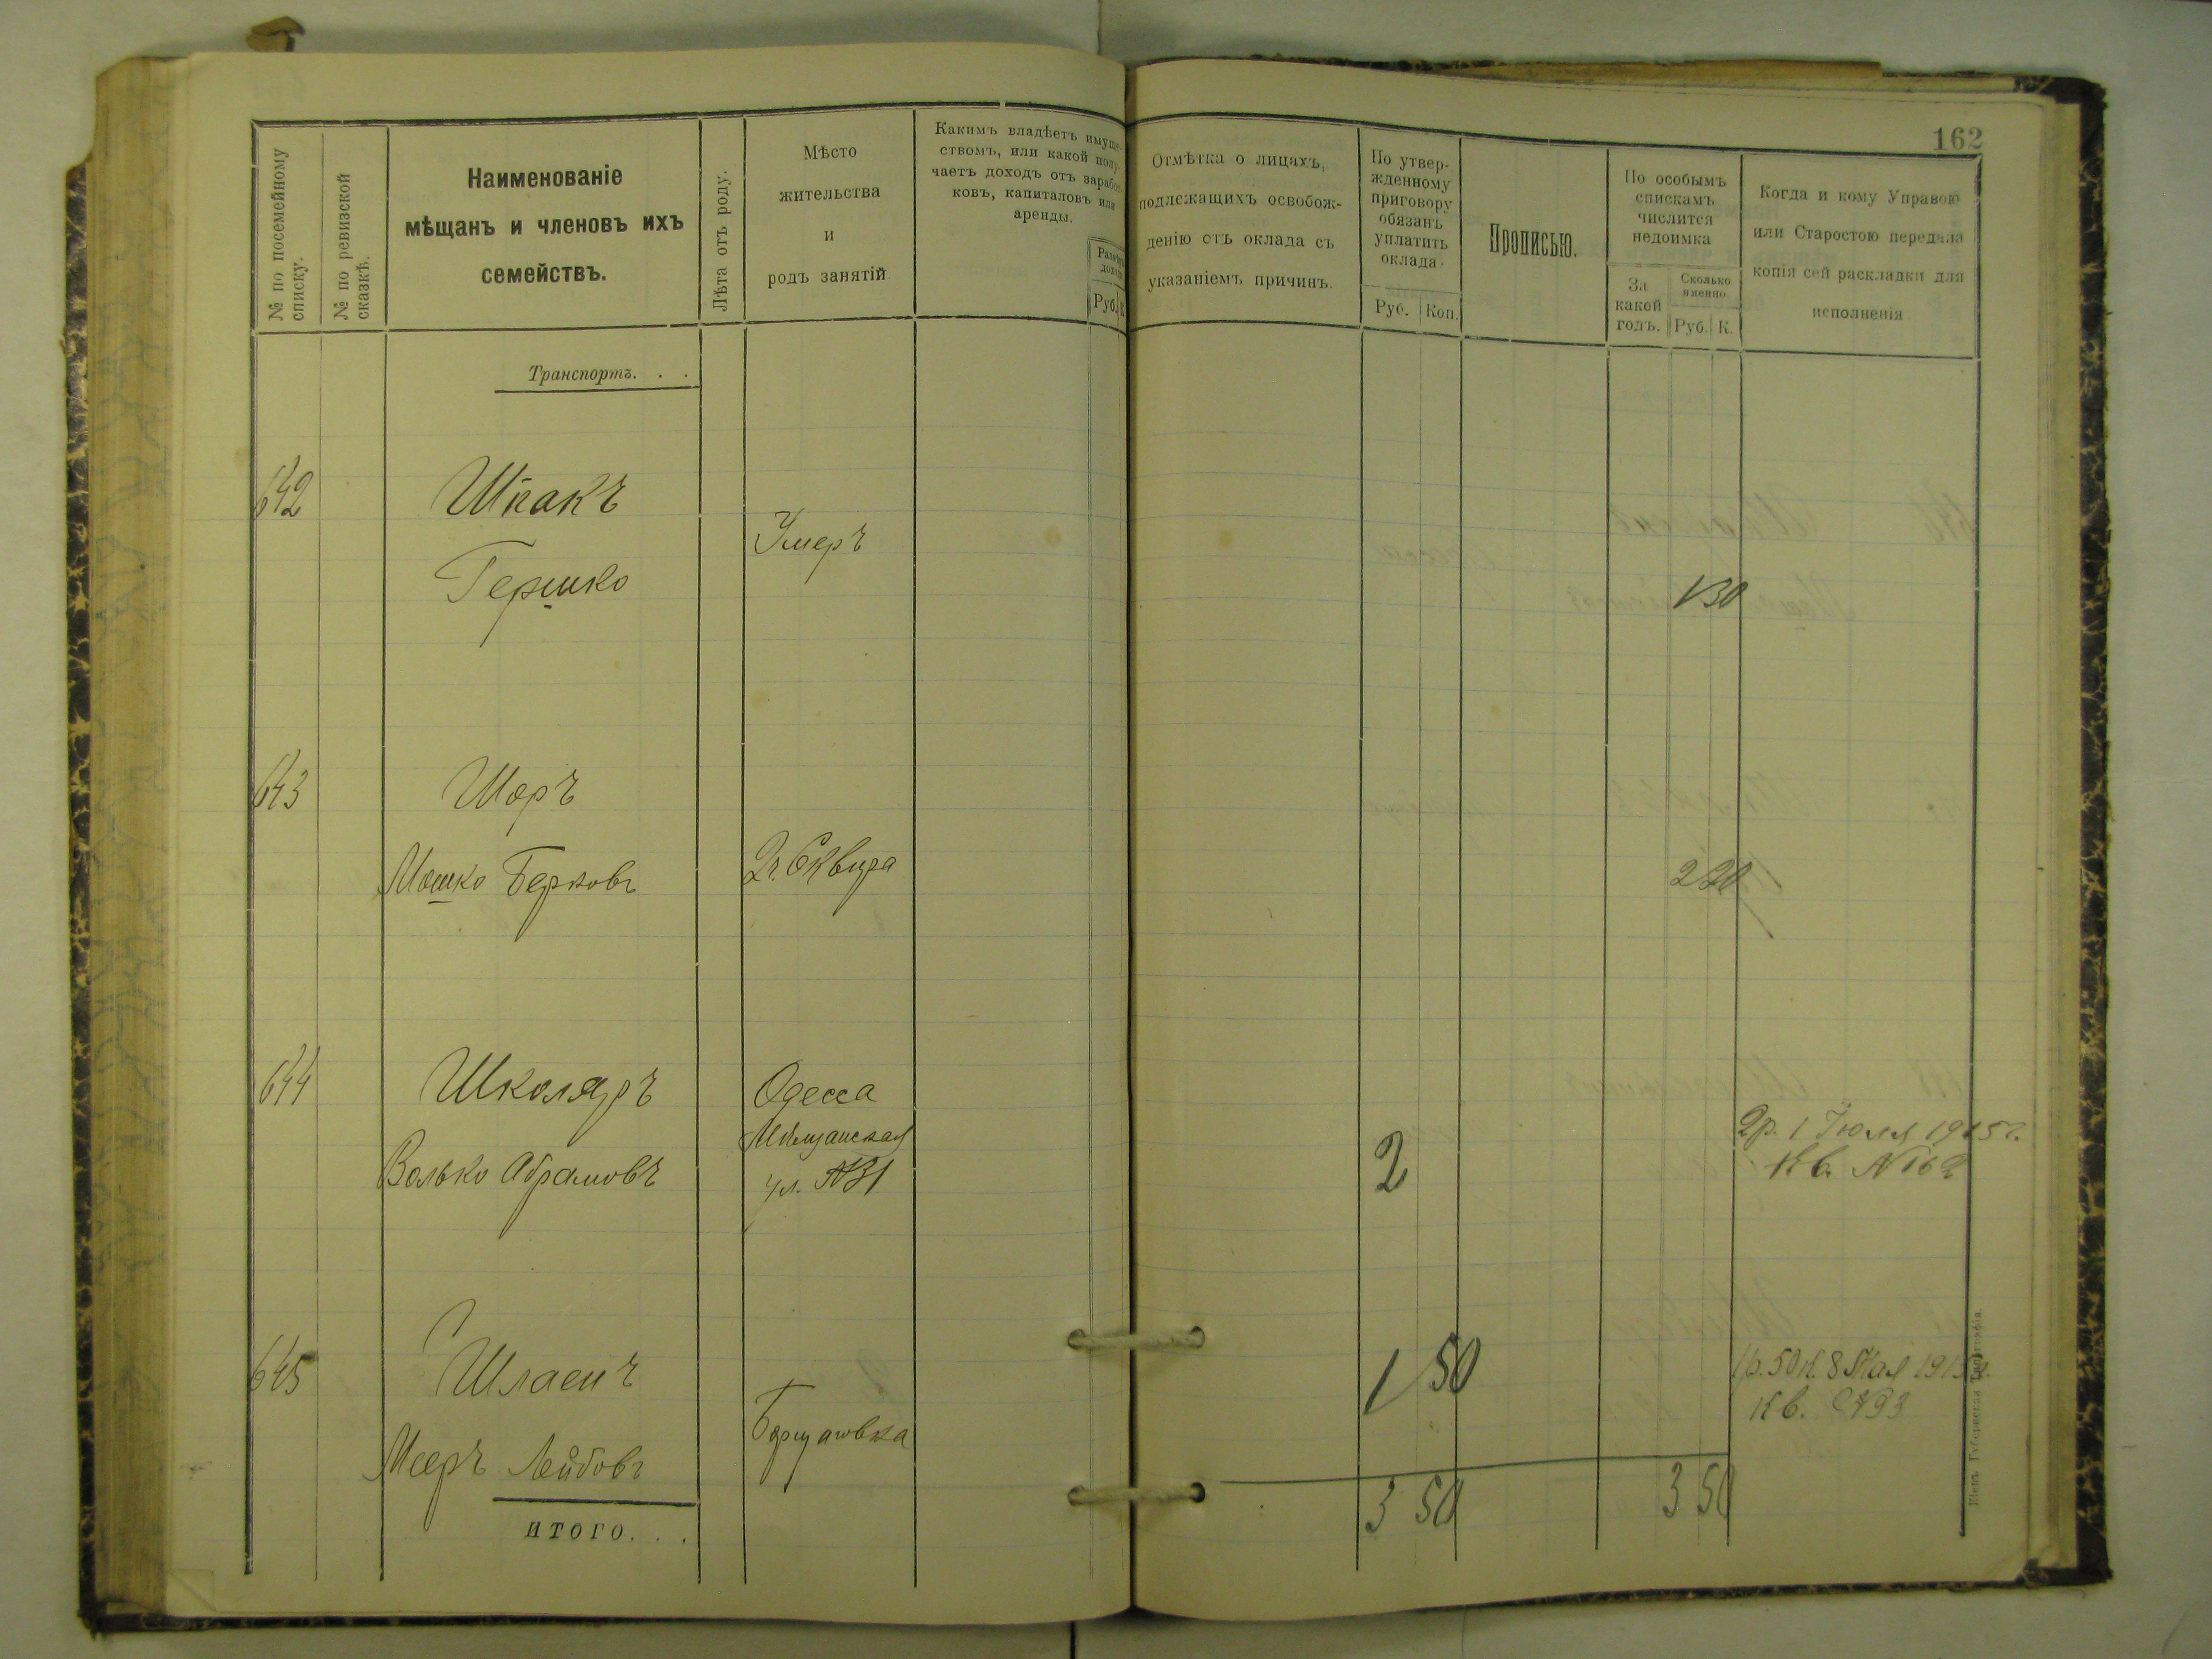 162
№ по посемейному списку.
№ по ревизской сказкѣ.
Наименованіе
мѣщанъ и членовъ ихъ
семействъ.
Лѣта отъ роду.
Мѣсто
жительства
и
родъ занятій
Какимъ владѣетъ имуще-
ствомъ, или какой полу-
чаетъ доходъ отъ зарабо-
ковъ, капиталовъ или
аренды.
Руб.
Отмѣтка о лицахъ,
подлежащихъ освобож-
денію отъ оклада съ
указаніемъ причинъ.
По утвер-
жденному
приговору
обязанъ
уплатить
оклада.
Руб. Коп.
Прописью.
По особымъ
спискамъ
числится
недоимка
За
какой
годъ.
Сколько
именно
Руб. К.
Когда и кому Управою
или Старостою передана
копія сей раскладки для
исполненія
Транспортъ. . .
642 Шпакъ
Умеръ
Гершко
1 30
643 Шоръ
Мошко Берковъ
г. Сквира
2 20
644 Школяръ
Одесса
Волько Абрамовъ
Мѣщанская
ул. №31
2
2р. 1 Іюля 1915г.
Кв. №162
645
Мееръ Лейбовъ
Борщаговка
1 50
1р. 50к. 8 Мая 1915г.
Кв. №93
ИТОГО. . .
3 50
3 50